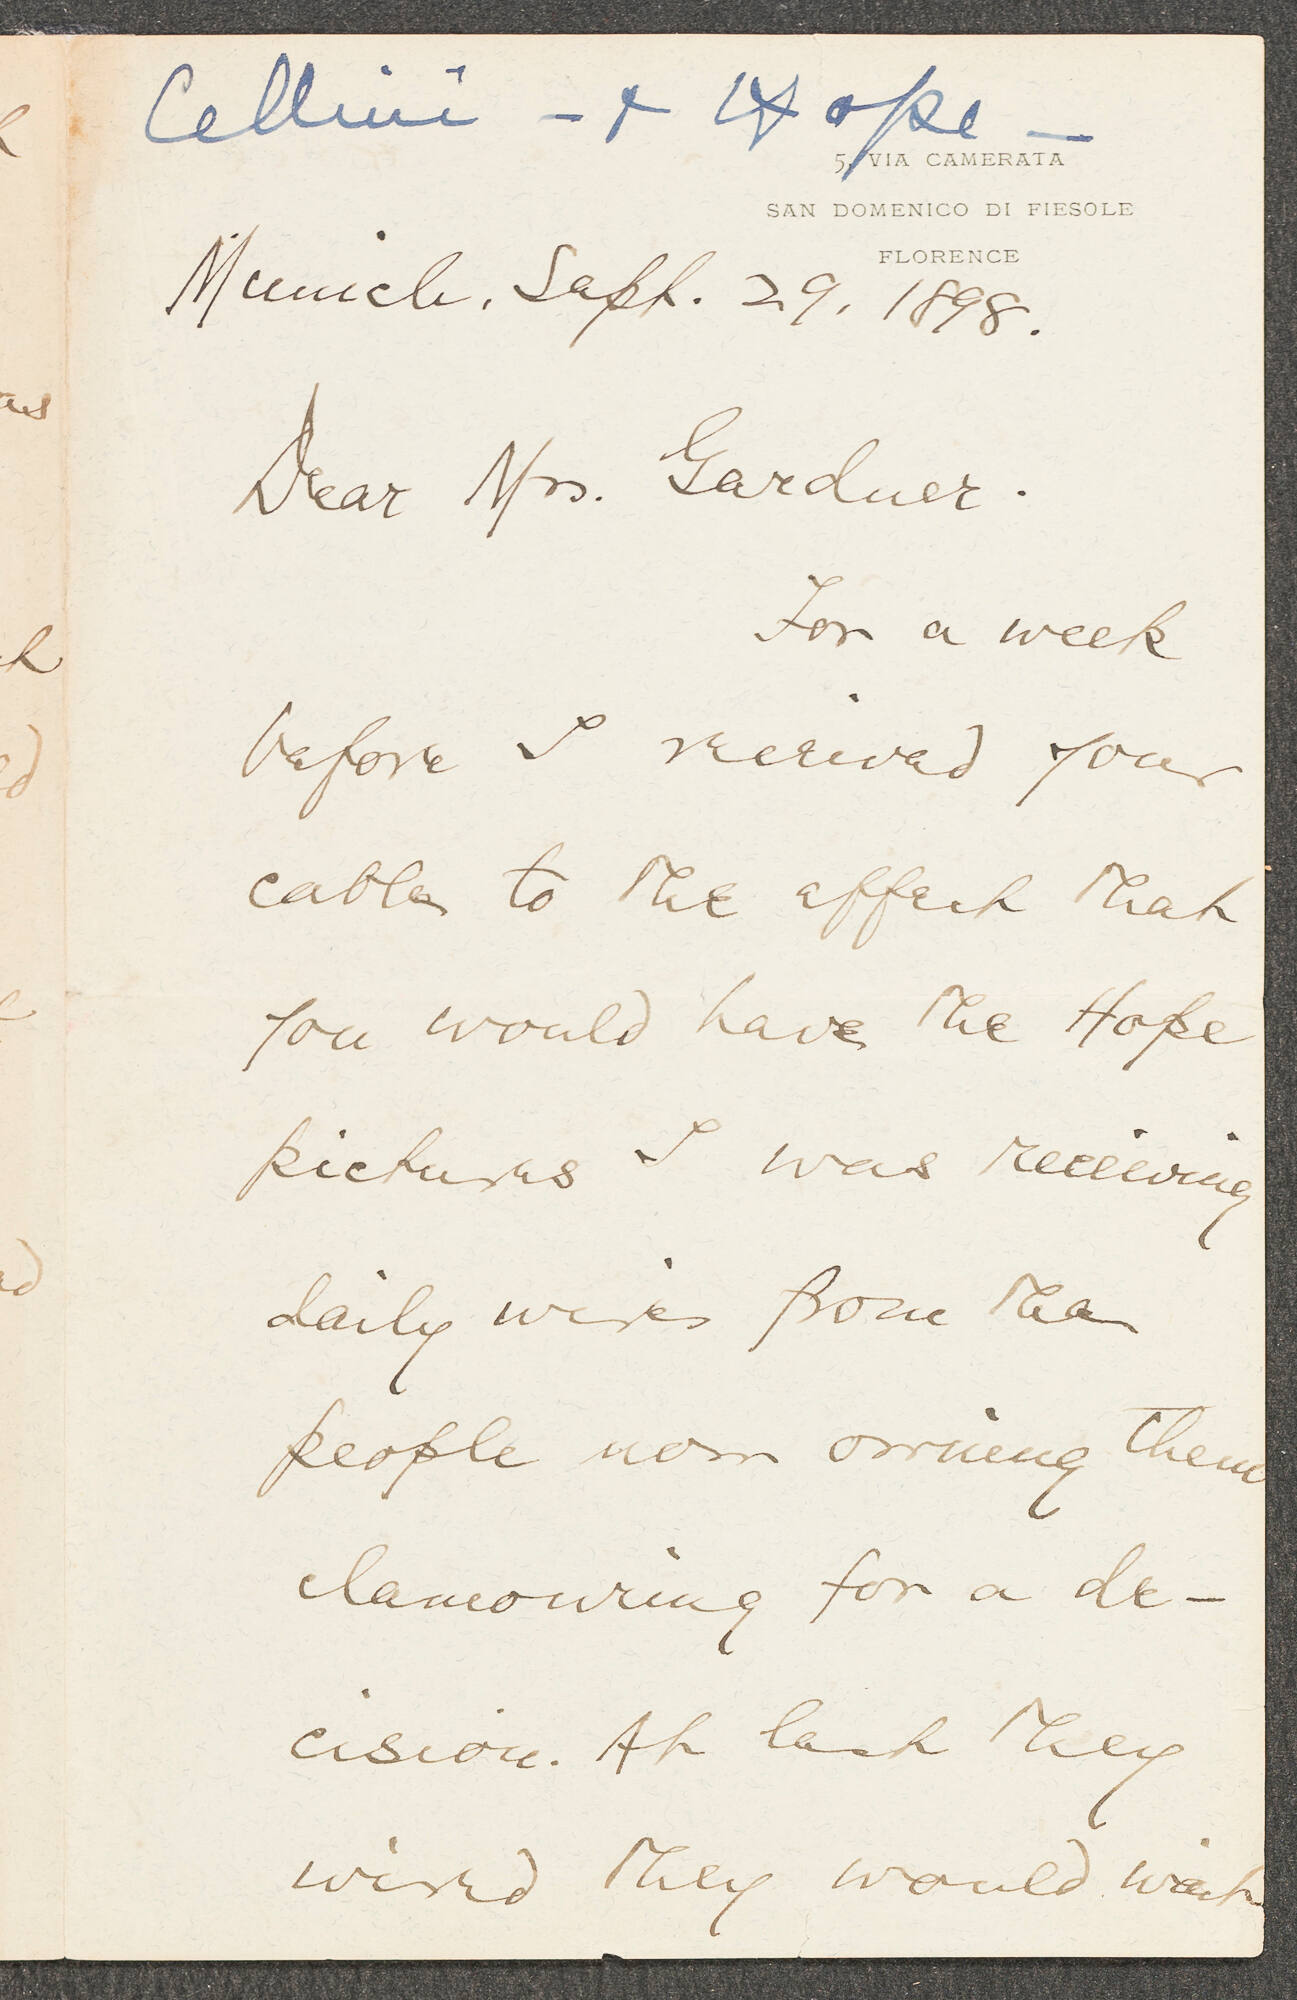 Cellini - & Hope -
5, VIA CAMERATA
SAN DOMENICO DI FIESOLE
FLORENCE
Munich, Sept. 29, 1898.
Dear Mrs. Gardner.
For a week
before I received your
cable to the effect that
you would have the Hope
pictures I was receiving
daily wires from the
people now owning them
clamouring for a de-
cision. At last they
wired they would wait